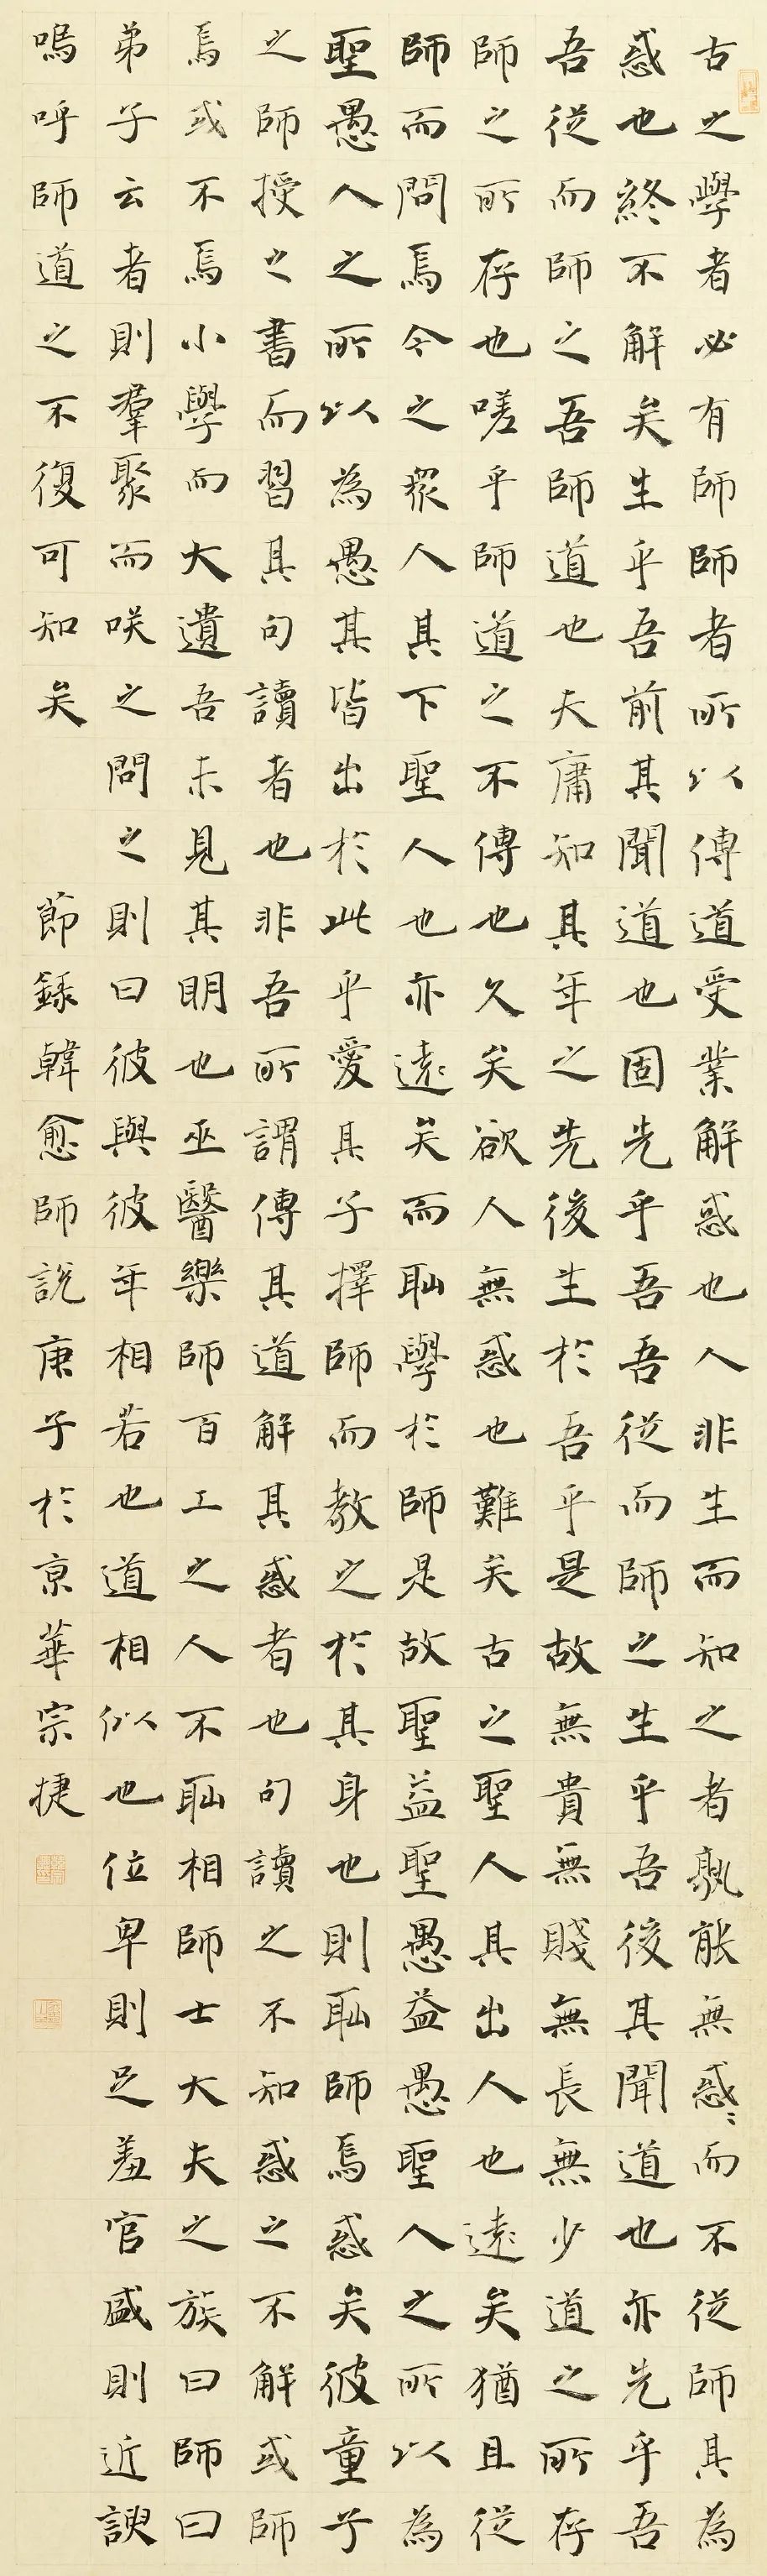 古之學者必有師師者所以傳道受業解惑也人非生而知之者孰能無惑〻而不從師其為
惑也終不解矣生乎吾前其聞道也固先乎吾吾從而師之生乎吾後其聞道也亦先乎吾
吾從而師之吾師道也夫庸知其年之先後生於吾乎是故無貴無賤無長無少道之所存
師之所存也嗟乎師道之不傳也久矣欲人無惑也難矣古之聖人其出人也遠矣猶且從
師而問焉今之衆人其下聖人也亦遠矣而恥學於師是故聖益聖愚益愚聖人之所以為
聖愚人之所以為愚其皆出於此乎愛其子擇師而教之於其身也則恥師焉惑矣彼童子
之師授之書而習其句讀者也非吾所謂傳其道解其惑者也句讀之不知惑之不解或師
焉或不焉小學而大遺吾未見其明也巫醫樂師百工之人不恥相師士大夫之族曰師曰
弟子云者則羣聚而咲之問之則曰彼與彼年相若也道相似也位卑則足羞官盛則近諛
嗚呼師道之不復可知矣 節録韓愈師說庚子於京華宗捷